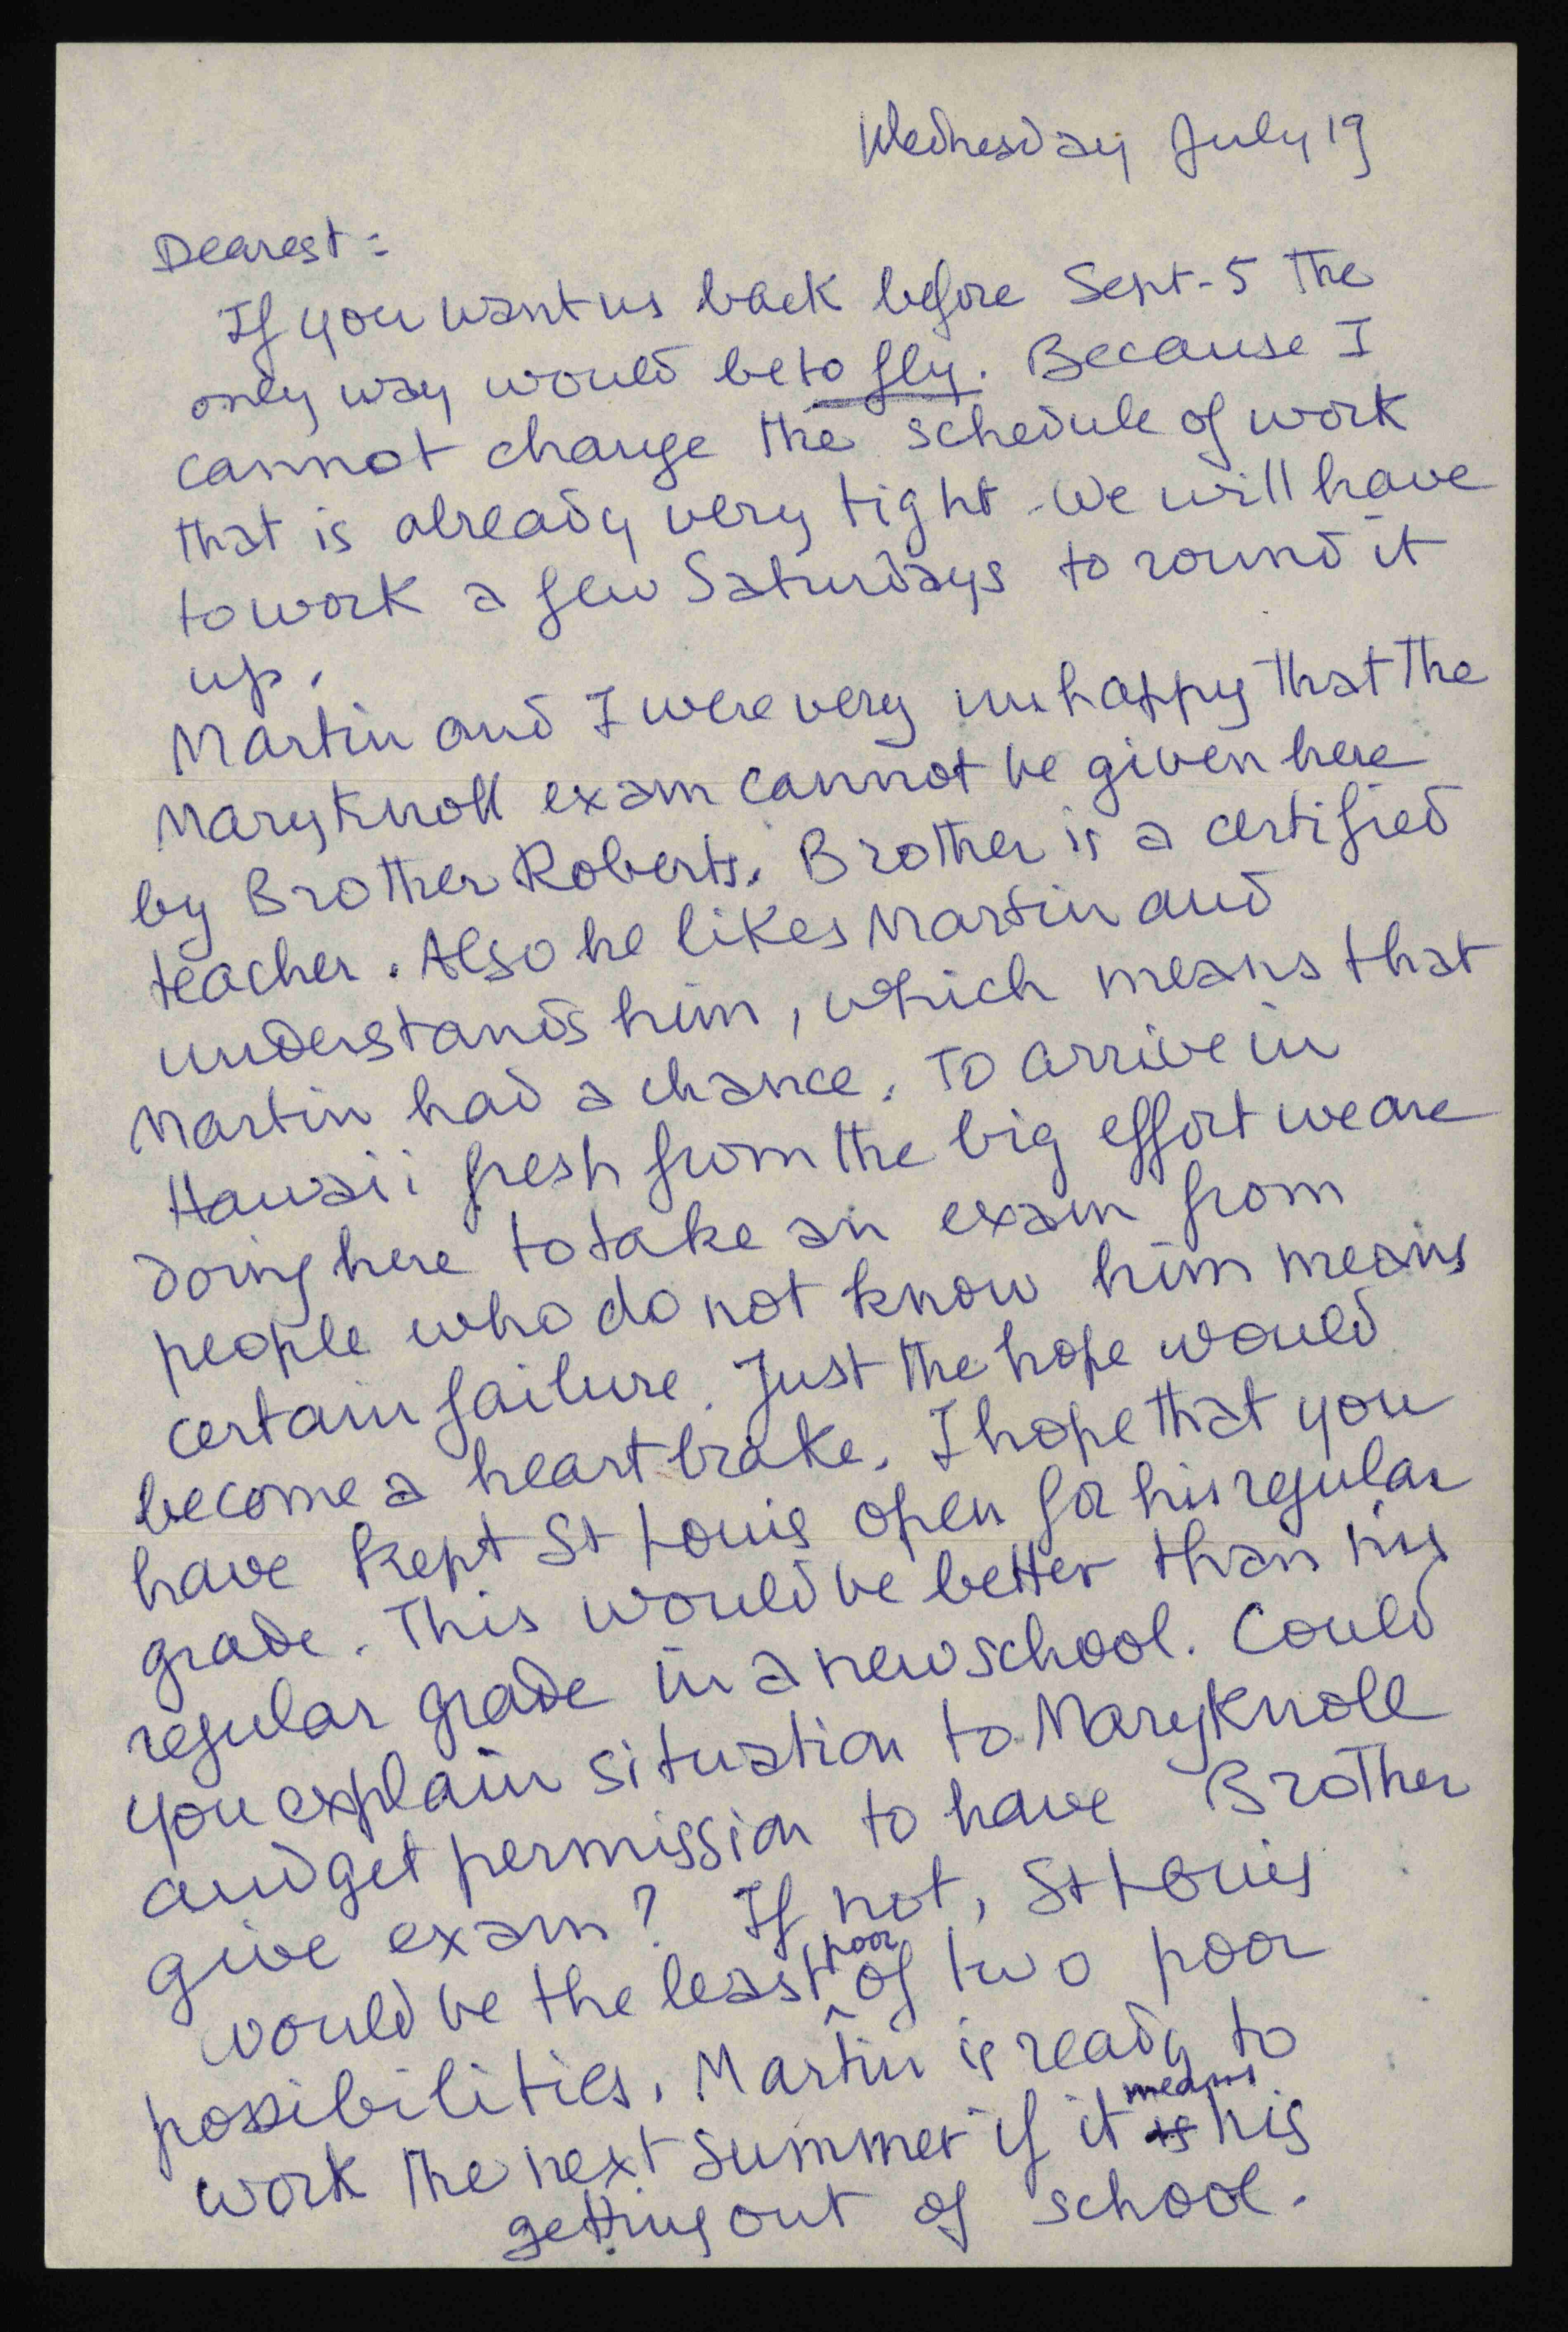 Wednesday July 19
Dearest:
If you want us back before Sept-5 the
only way would be to fly. Because I
cannot change the schedule of work
that is already very tight. We will have
to work a few Saturdays to round it
up.
Martin and I were very unhappy that the
Maryknoll exam cannot be given here
by Brother Roberts. Brother is a certified
teacher. Also he likes Martin and
understands him, which means that
Martin had a chance. To arrive in
Hawaii fresh from the big effort we are
doing here to take an exam from
people who do not know him means
certain failure. Just the hope would
become a heartbrake. I hope that you
have kept St Louis open for his regular
grade. This would be better than his
regular grade in a new school. Could
you explain situation to Maryknoll
and get permission to have Brother
give exam? If not, St Louis
would be the least poor of two poor
possibilities. Martin is ready to
work the next summer if it is means his
getting out of school.